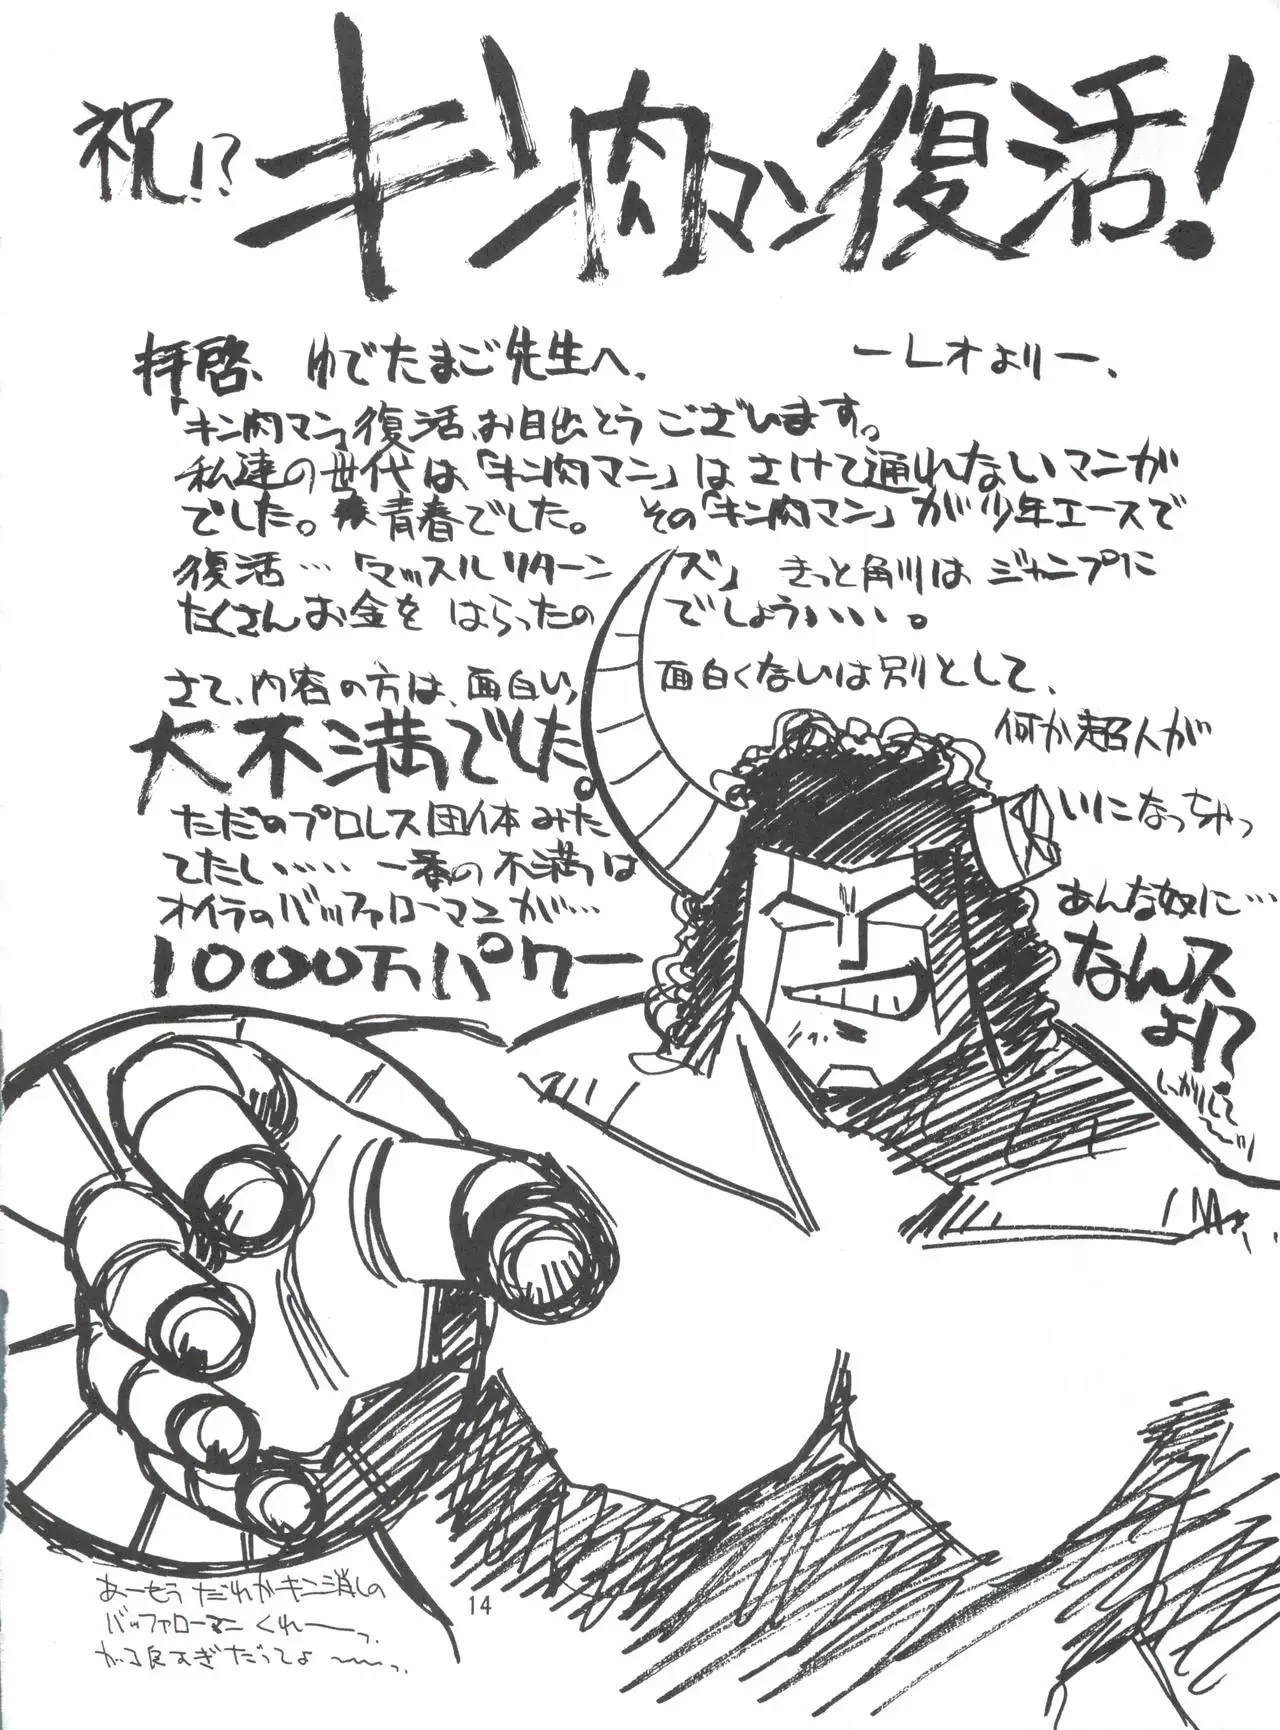 祝!? キン肉マン復活!
拝啓、ゆでたまご先生へ、 ーレオよりー、
「キン肉マン」復活、お目出とうございます。
私達の世代は、「キン肉マン」はさけて通れないマンガ
でした。青春でした。 その「キン肉マン」が少年エースで
復活…「マッスルリターンズ」きっと角川はジャンプに
たくさんお金をはらったのでしょういいい。
さて、内容の方は、面白い、面白くないは別として、
大不満でした。 何か超人が
ただのプロレス団体みたいになっちゃっ
てたし…… 一番の不満は あんな奴に…
オイラのバッファローマンが… なんスよ!?
1000万パワー
しっかりして〜ッ
あーもうだれかキン消しの
バッファローマンくれーっ、
ガラ良すぎだってよ〜〜っ、
14